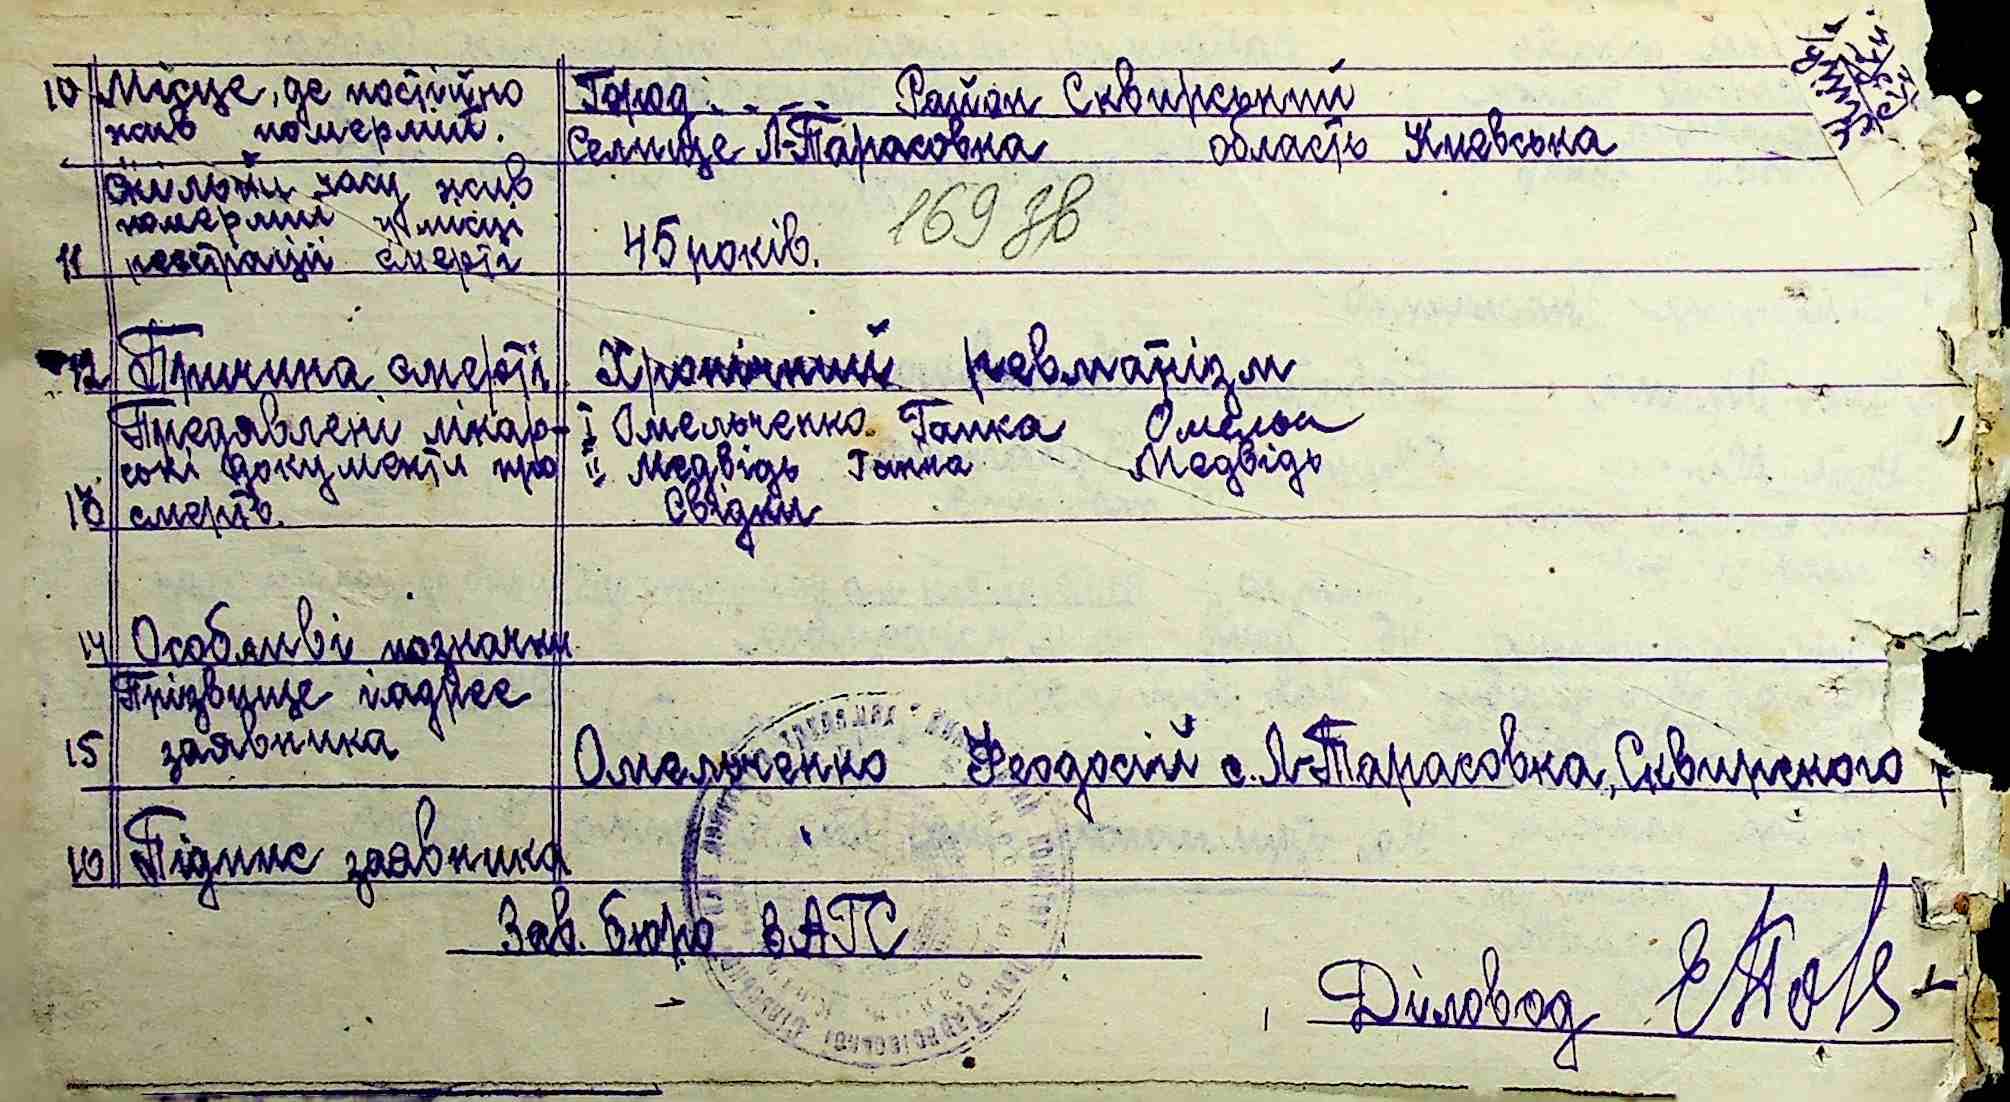 10 Місце, де постійно
жив померлий.
Город . - . - . Район Сквирський
Селище Л-Тарасовка область Киевська
Скільки часу жив
померлий у місці
11 реєстрації смерті
45 років.
169 зв
12 Причина смерті Хронічний ревматізм
Предявлені лікар-
ські документи про
13 смерть.
I Омельченко Ганка Омельч
II Медвідь Ганна Медвідь
Свідки
14 Особливі позначки
Прізвище і адрес
15 заявника
Омельченко Феодосій с. Л-Тарасовка, Сквирского р
16 Підпис заявника
Зав. бюро ЗАГС
Діловод